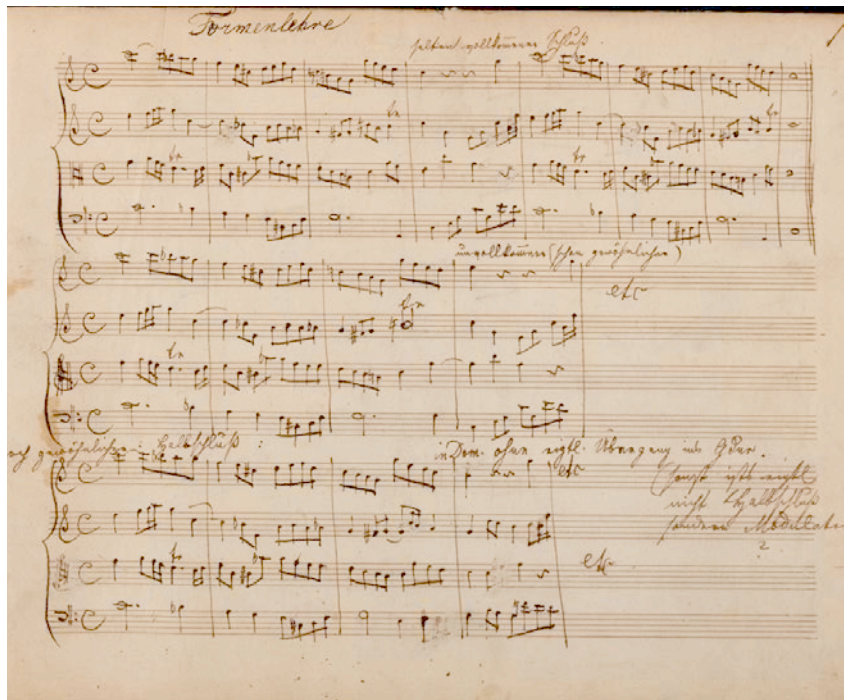 Formenlehre
selten vollkommener Schluß.
unvollkommen (schon gewöhnlicher)
etc
noch gewöhnlicher: Halbschluß:
in Dom. ohne eigtl. Übergang ins Gdur.
etc
(sonst ists eigtl
nicht Halbschluß
sondern Modulat
?
etc